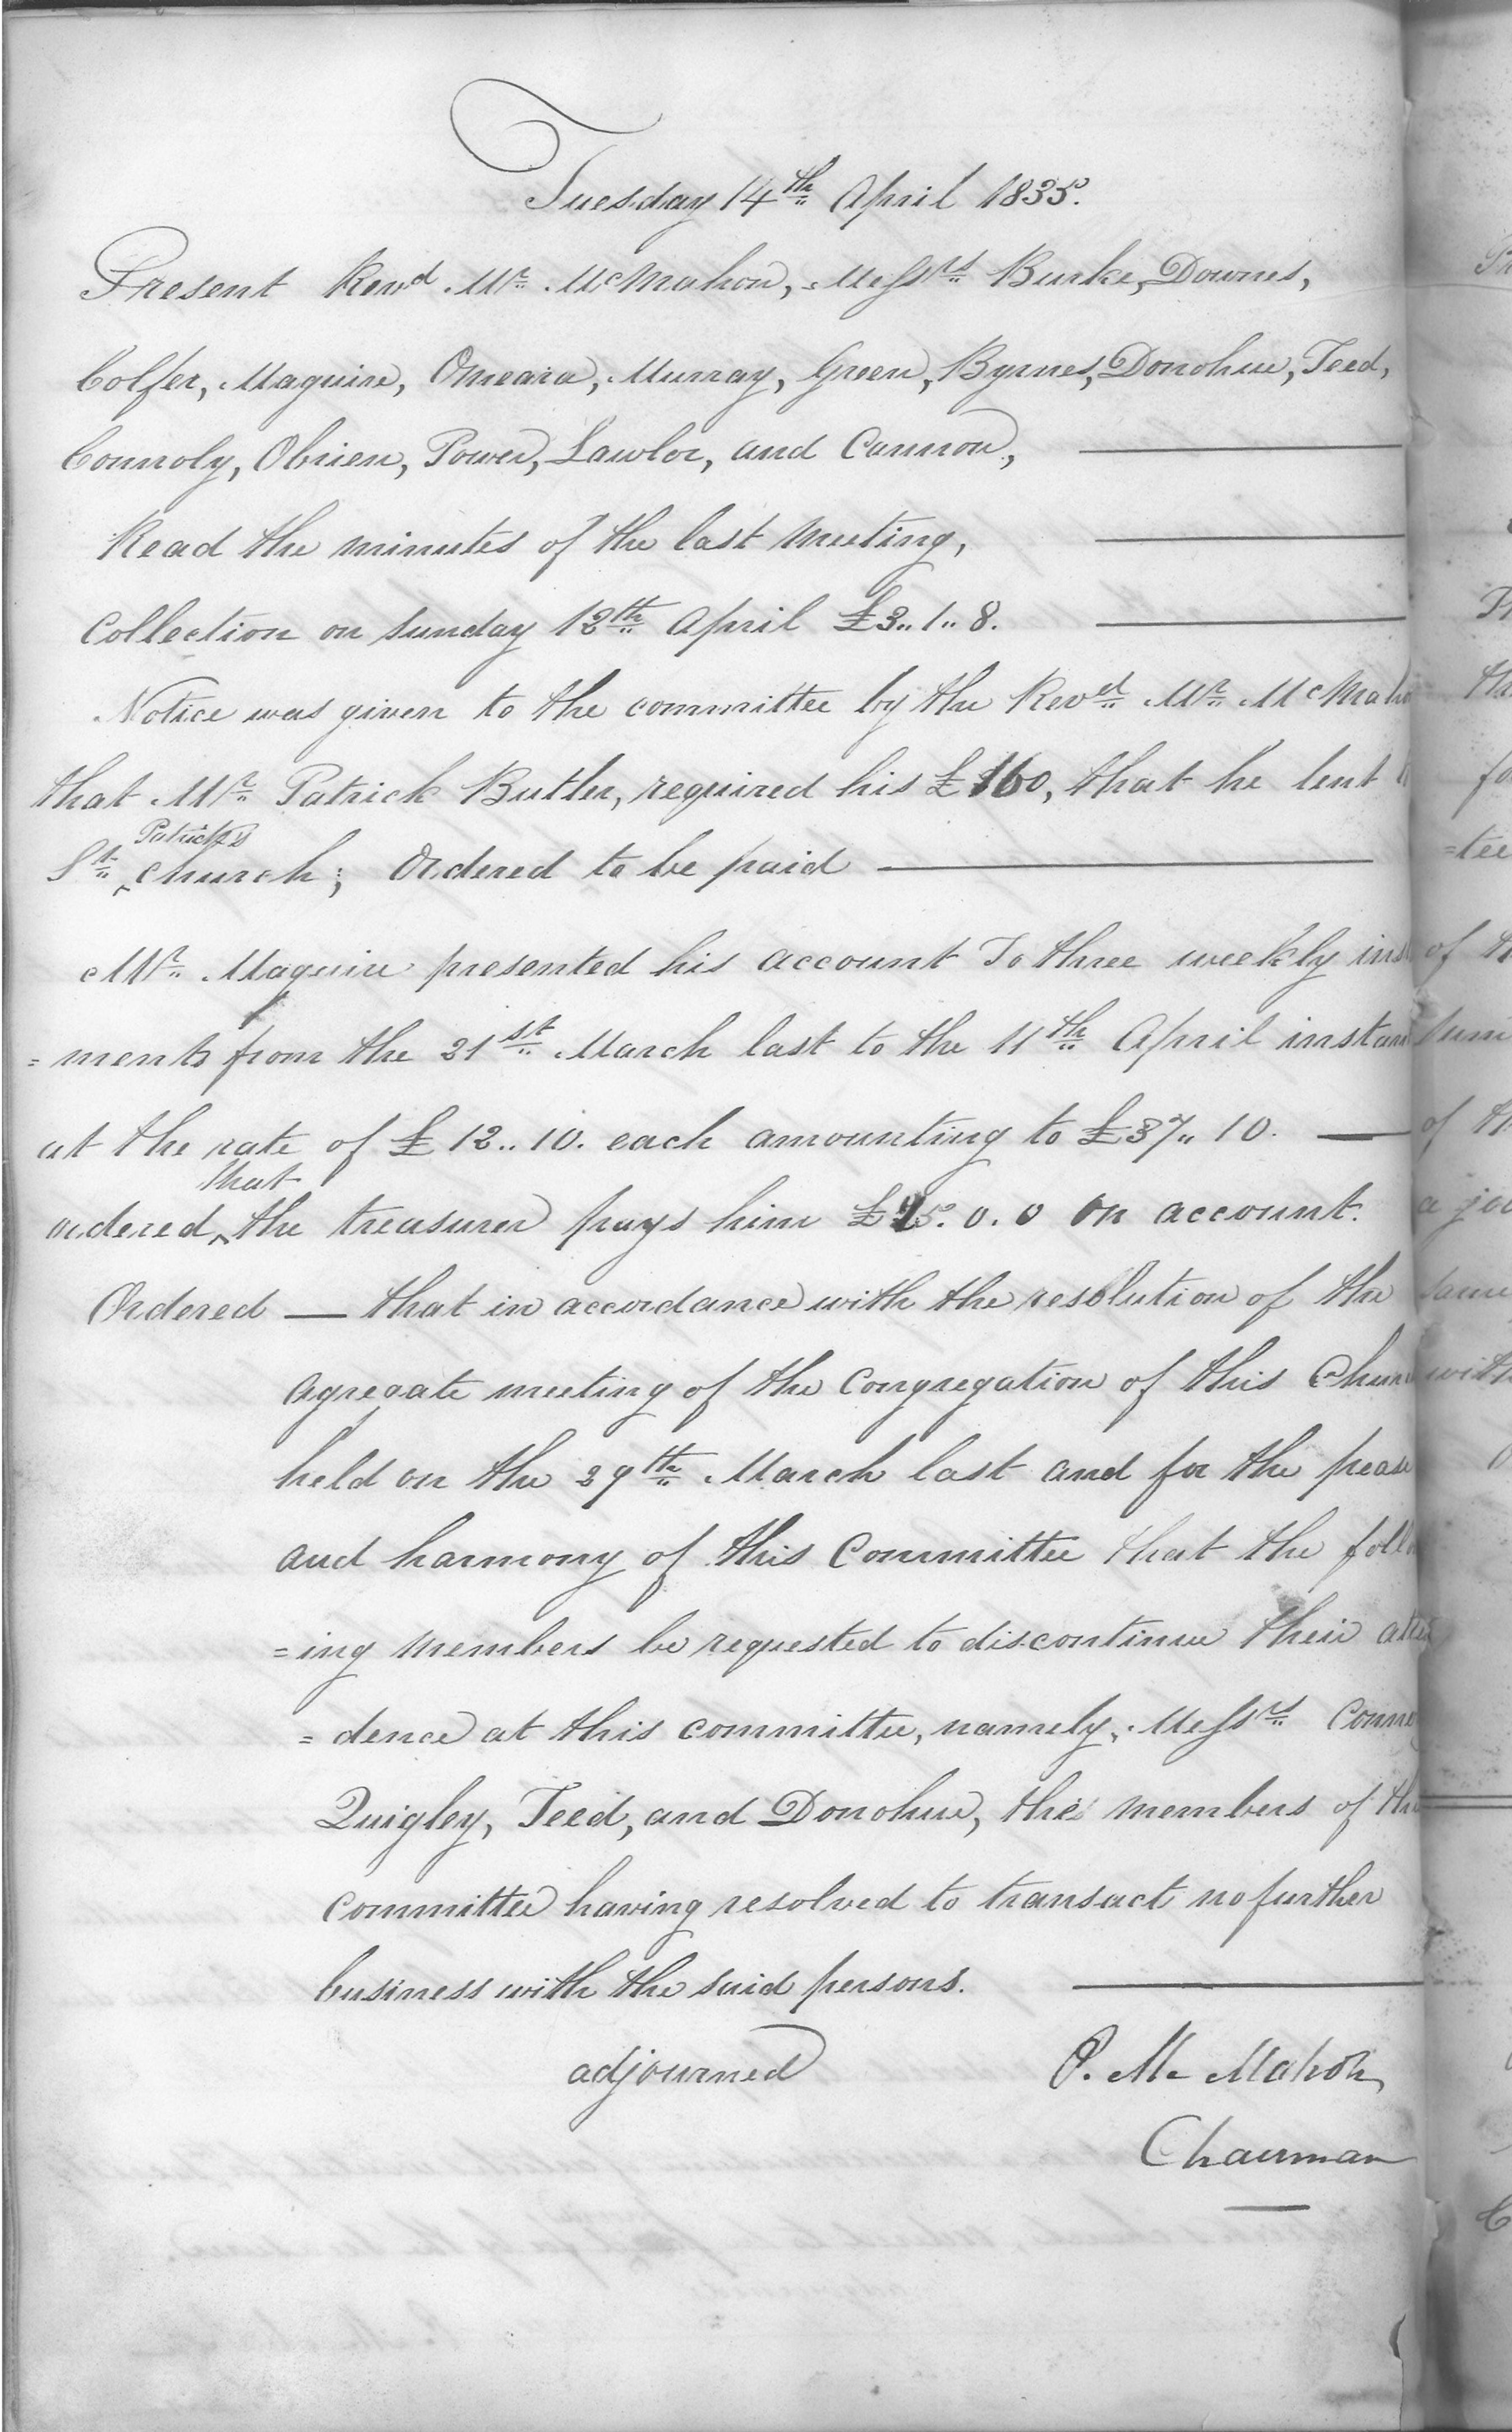 Tuesday 14th April 1835.
Present Revd Mr McMahon, Messrs Burke, Downes,
Colfer, Maguire, Omeara, Murray, Green, Byrnes, Donohue, Teed,
Connoly, Obrien, Power, Lawlor, and Cannon,
Read the minutes of the last Meeting,
Collection on Sunday 12th April £3..1..8.
Notice was given to the committee by the Revd Mr McMaho
that Mr Patrick Butler, required his £160, that he lent
Patrick's
St church; Ordered to be paid
Mr Maguire presented his account To three weekly inst
=ments from the 21st March last to the 11th April instan
at the rate of £12..10. each amounting to £37..10.
that
ordered the treasurer pays him £ 5.0.0 on account.
Ordered — that in accordance with the resolution of the
agregate meeting of the Congregation of this Chur
held on the 29th March last and for the peace
and harmony of this Committee that the follo
=ing members be requested to discontinue their atte
=dence at this committee, namely, Messrs Conno
Quigley, Teed, and Donohue, the members of the
committee having resolved to transact no further
business with the said persons.
adjourned
P. Mc Mahon
Chairman